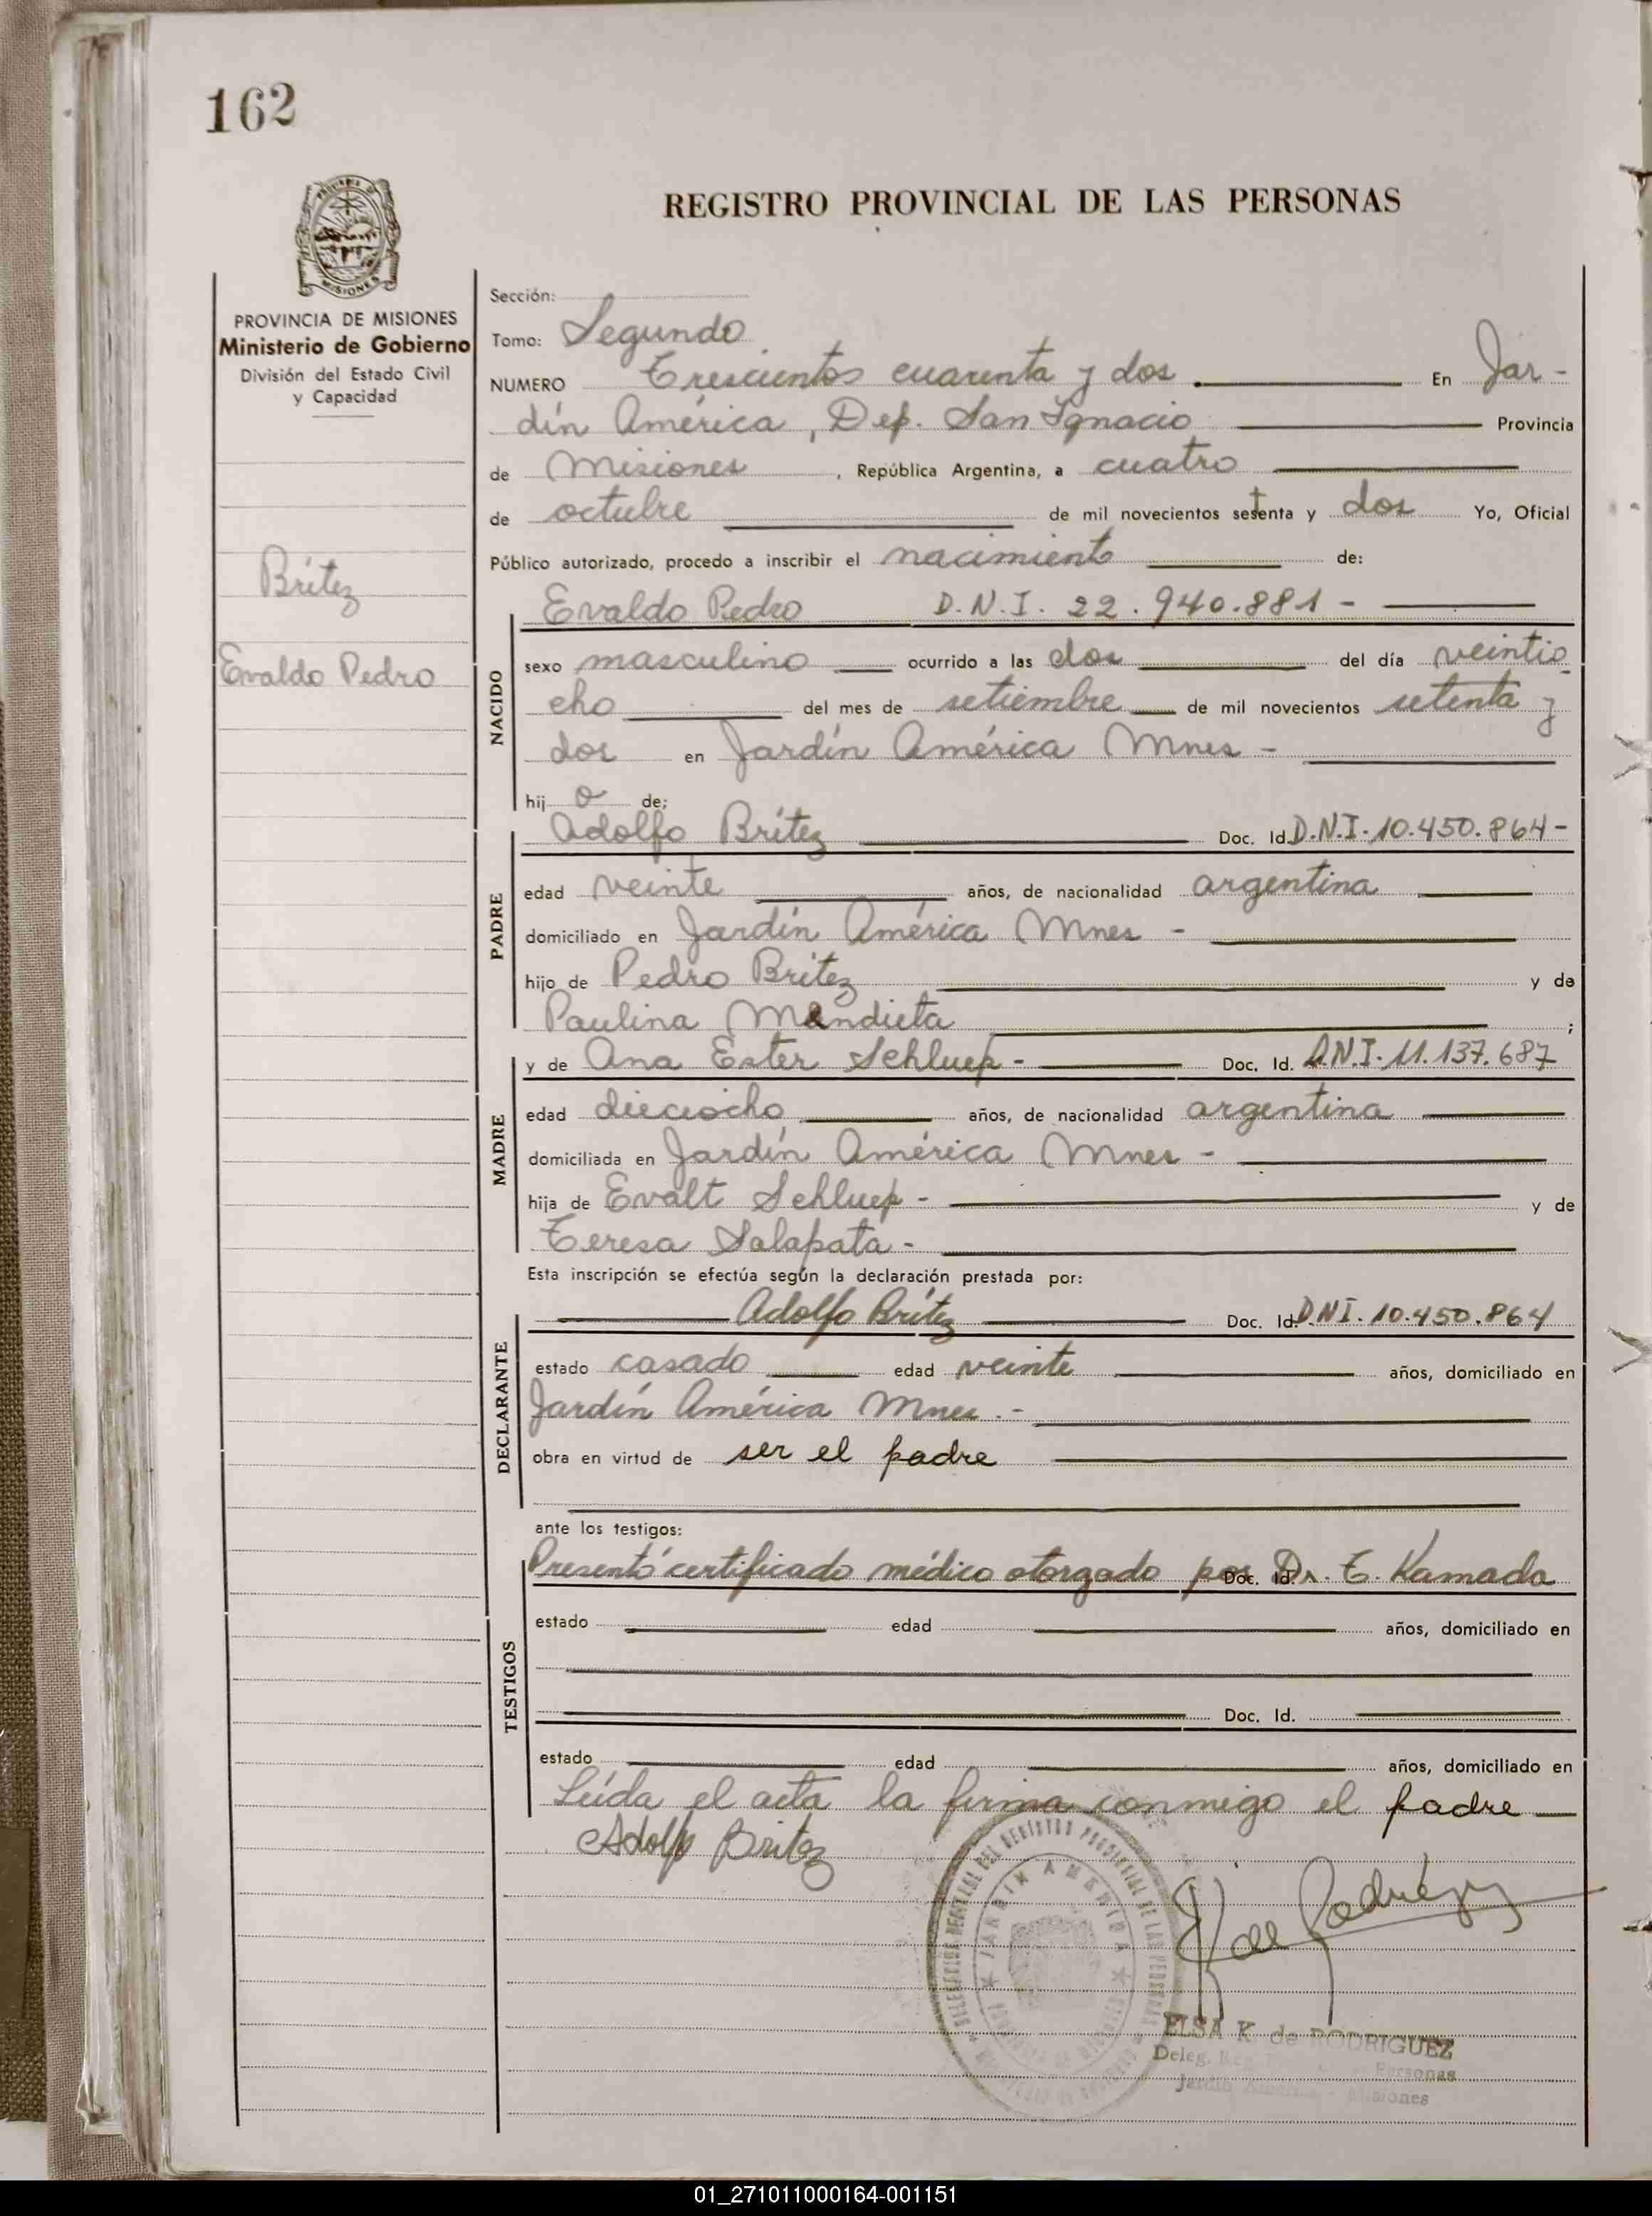 162
REGISTRO PROVINCIAL DE LAS PERSONAS
MISIONES
PROVINCIA DE MISIONES
Ministerio de Gobierno
División del Estado Civil
y Capacidad
Britez
Evaldo Pedro
Sección:
Tomo: Segundo
NUMERO Trescientos cuarenta y dos En Jar-
dín América, Dep. San Ignacio Provincia
de Misiones, República Argentina, a cuatro
de octubre de mil novecientos setenta y dos Yo, Oficial
Público autorizado, procedo a inscribir el nacimiento de:
Evaldo Pedro D.N.I. 22.940.881-
NACIDO
sexo masculino ocurrido a las dos del día veintio
cho del mes de setiembre de mil novecientos setenta y
dos en Jardín América Mnes-
hijo de;
PADRE
Adolfo Britez Doc. Id. D.N.I. 10.450.864-
edad veinte años, de nacionalidad argentina
domiciliado en Jardín América Mnes -
hijo de Pedro Britez y de
Paulina Mendieta ;
MADRE
y de Ana Ester Schluep- Doc. Id. D.N.I. 11.137.687
edad dieciocho años, de nacionalidad argentina
domiciliada en Jardín América Mnes -
hija de Evalt Schluep- y de
Teresa Salapata-
Esta inscripción se efectúa según la declaración prestada por:
DECLARANTE
Adolfo Britez Doc. Id. DNI. 10.450.864
estado casado edad veinte años, domiciliado en
Jardín América Mnes.-
obra en virtud de ser el padre
ante los testigos:
TESTIGOS
Presentó certificado médico otorgado por Doc. Id. Dr. T. Kamada
estado edad años, domiciliado en
Doc. Id.
estado edad años, domiciliado en
Leída el acta la firma conmigo el padre
Adolfo Britez
JARDIN AMERICA
de Rodríguez
ELSA K. de RODRIGUEZ
Deleg. Personas
Jardín América - Misiones
01_271011000164-001151